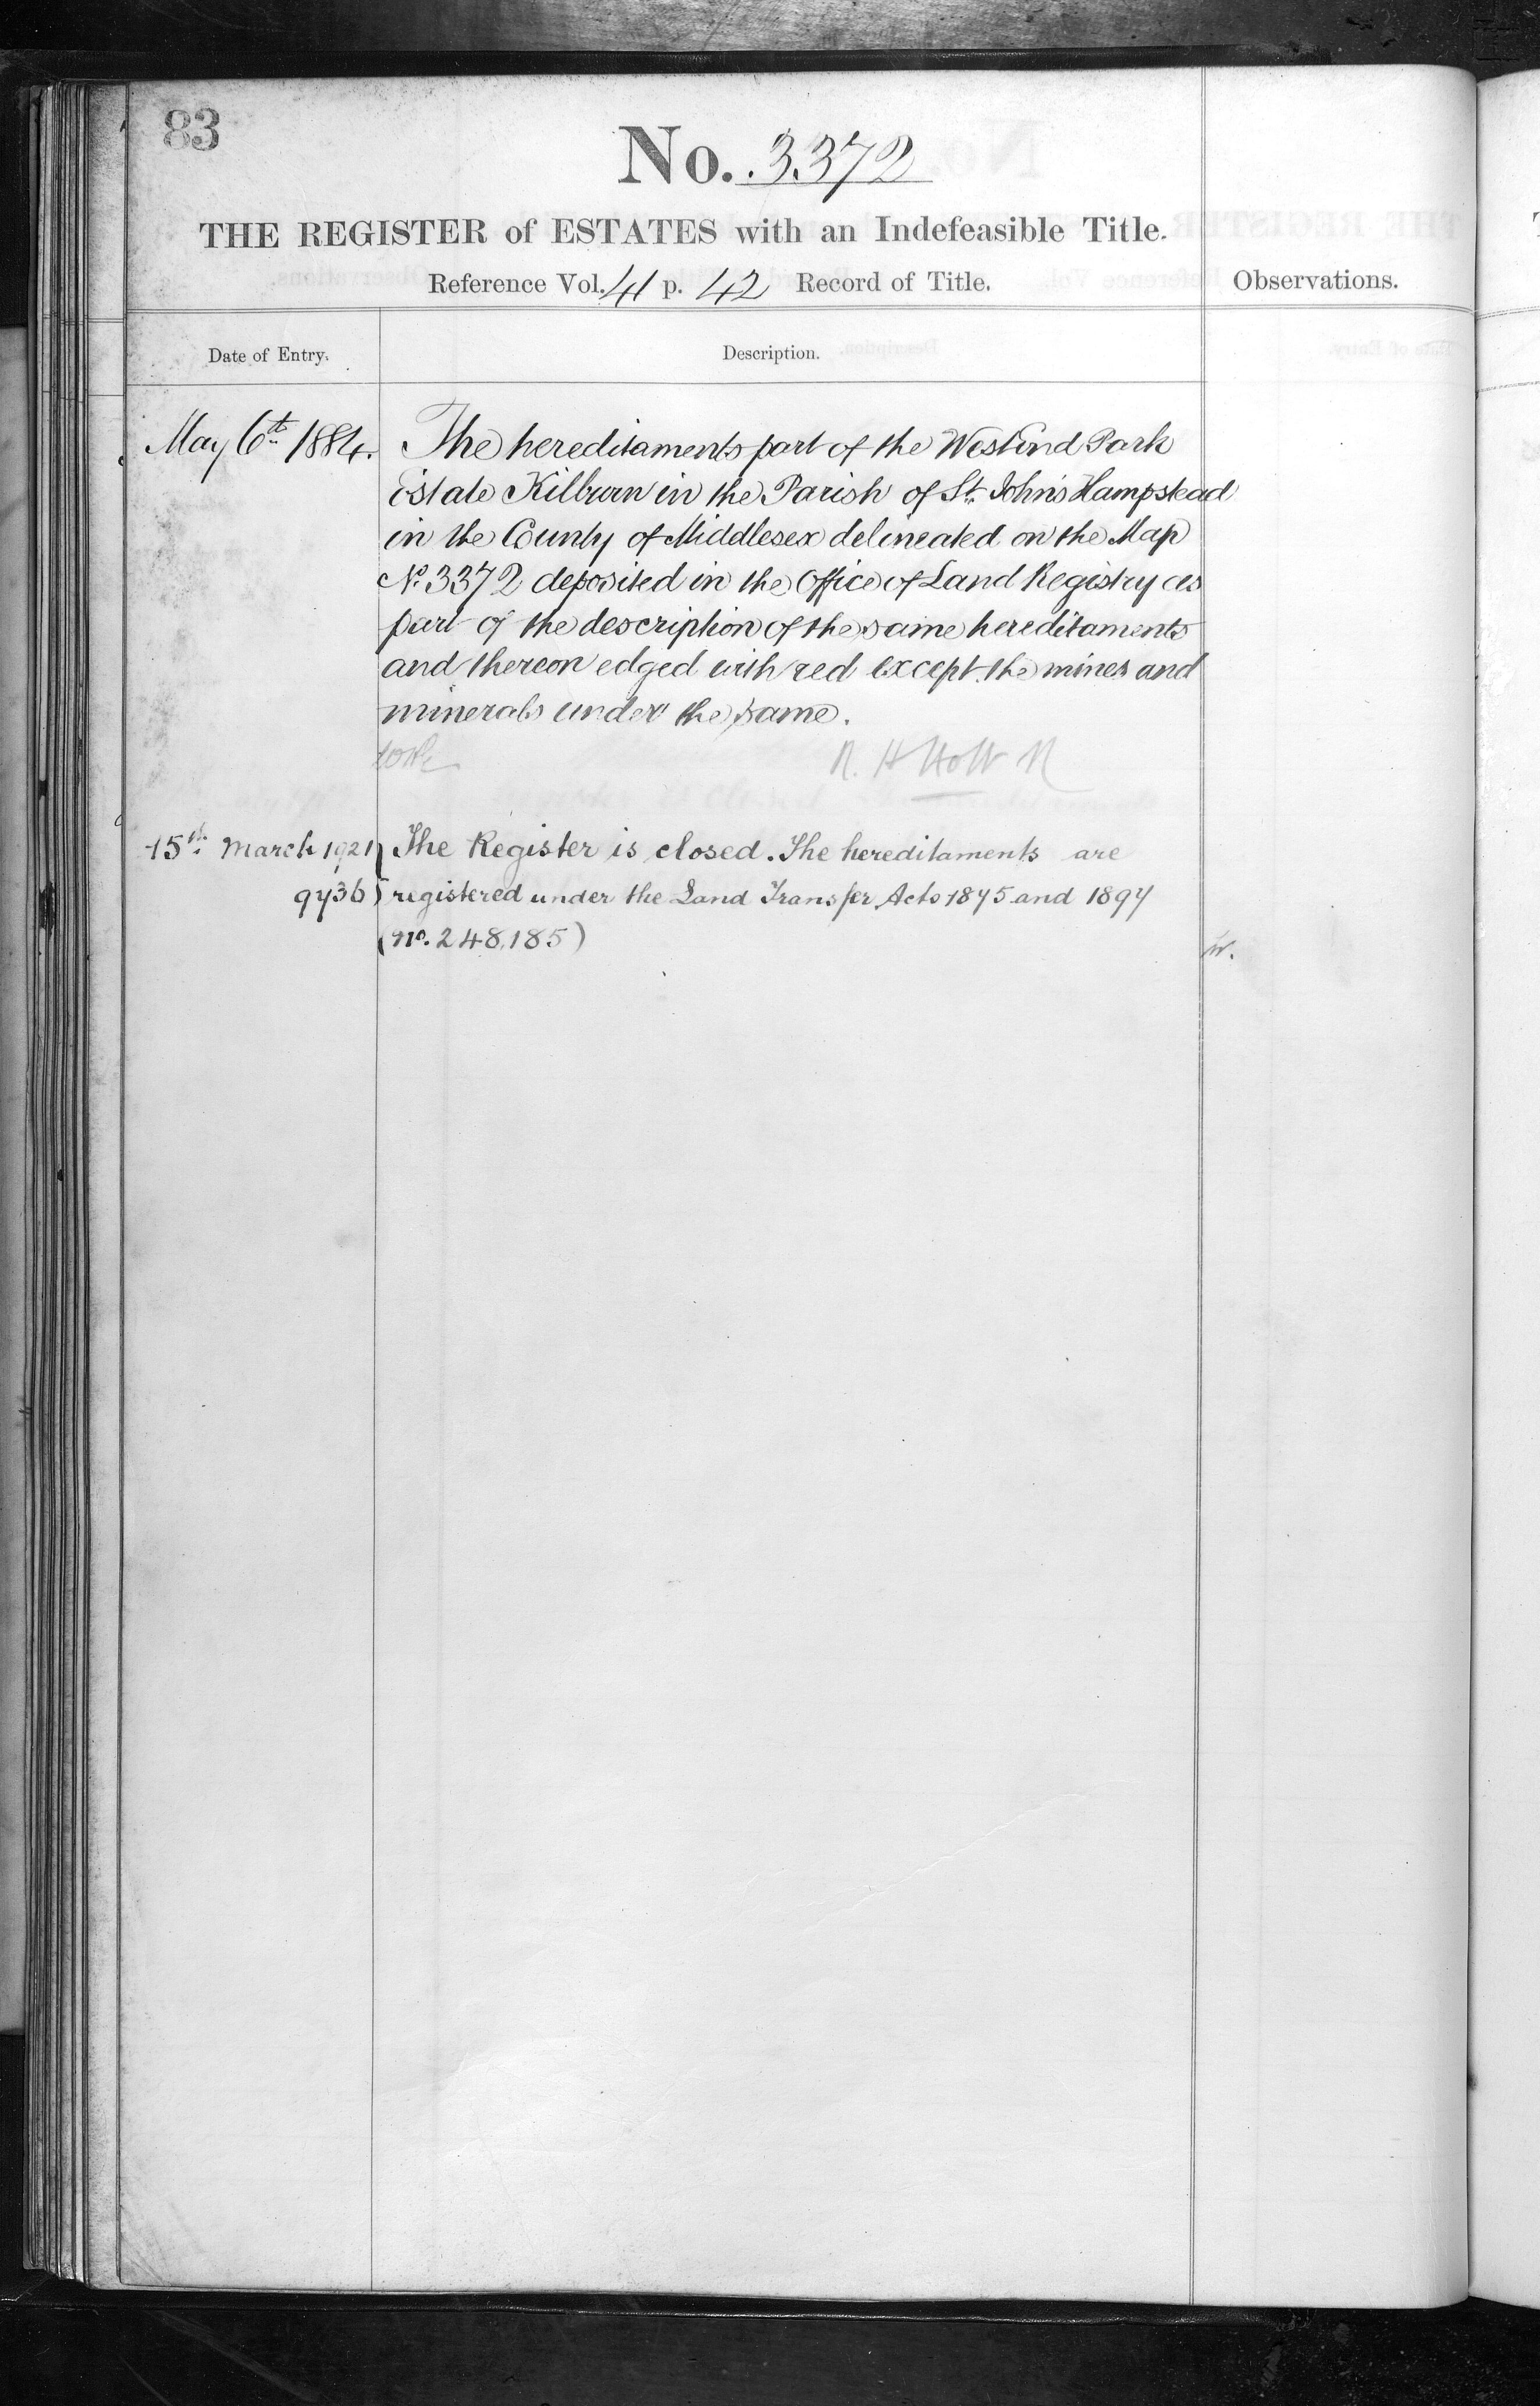 83
No. 3372
THE REGISTER of ESTATES with an Indefeasible Title.
Reference Vol. 41 p. 42 Record of Title.
Observations.
Date of Entry.
Description.
May 6th 1884.
The hereditaments part of the West End Park
Estate Kilburn in the Parish of St. John's Hampstead
in the County of Middlesex delineated on the Map
No. 3372 deposited in the Office of Land Registry as
part of the description of the same hereditaments
and thereon edged with red except the mines and
minerals under the same.
R. H Holt R
15th March 1921
9736
The Register is closed. The hereditaments are
registered under the Land Transfer Acts 1875 and 1897
(No. 248,185)